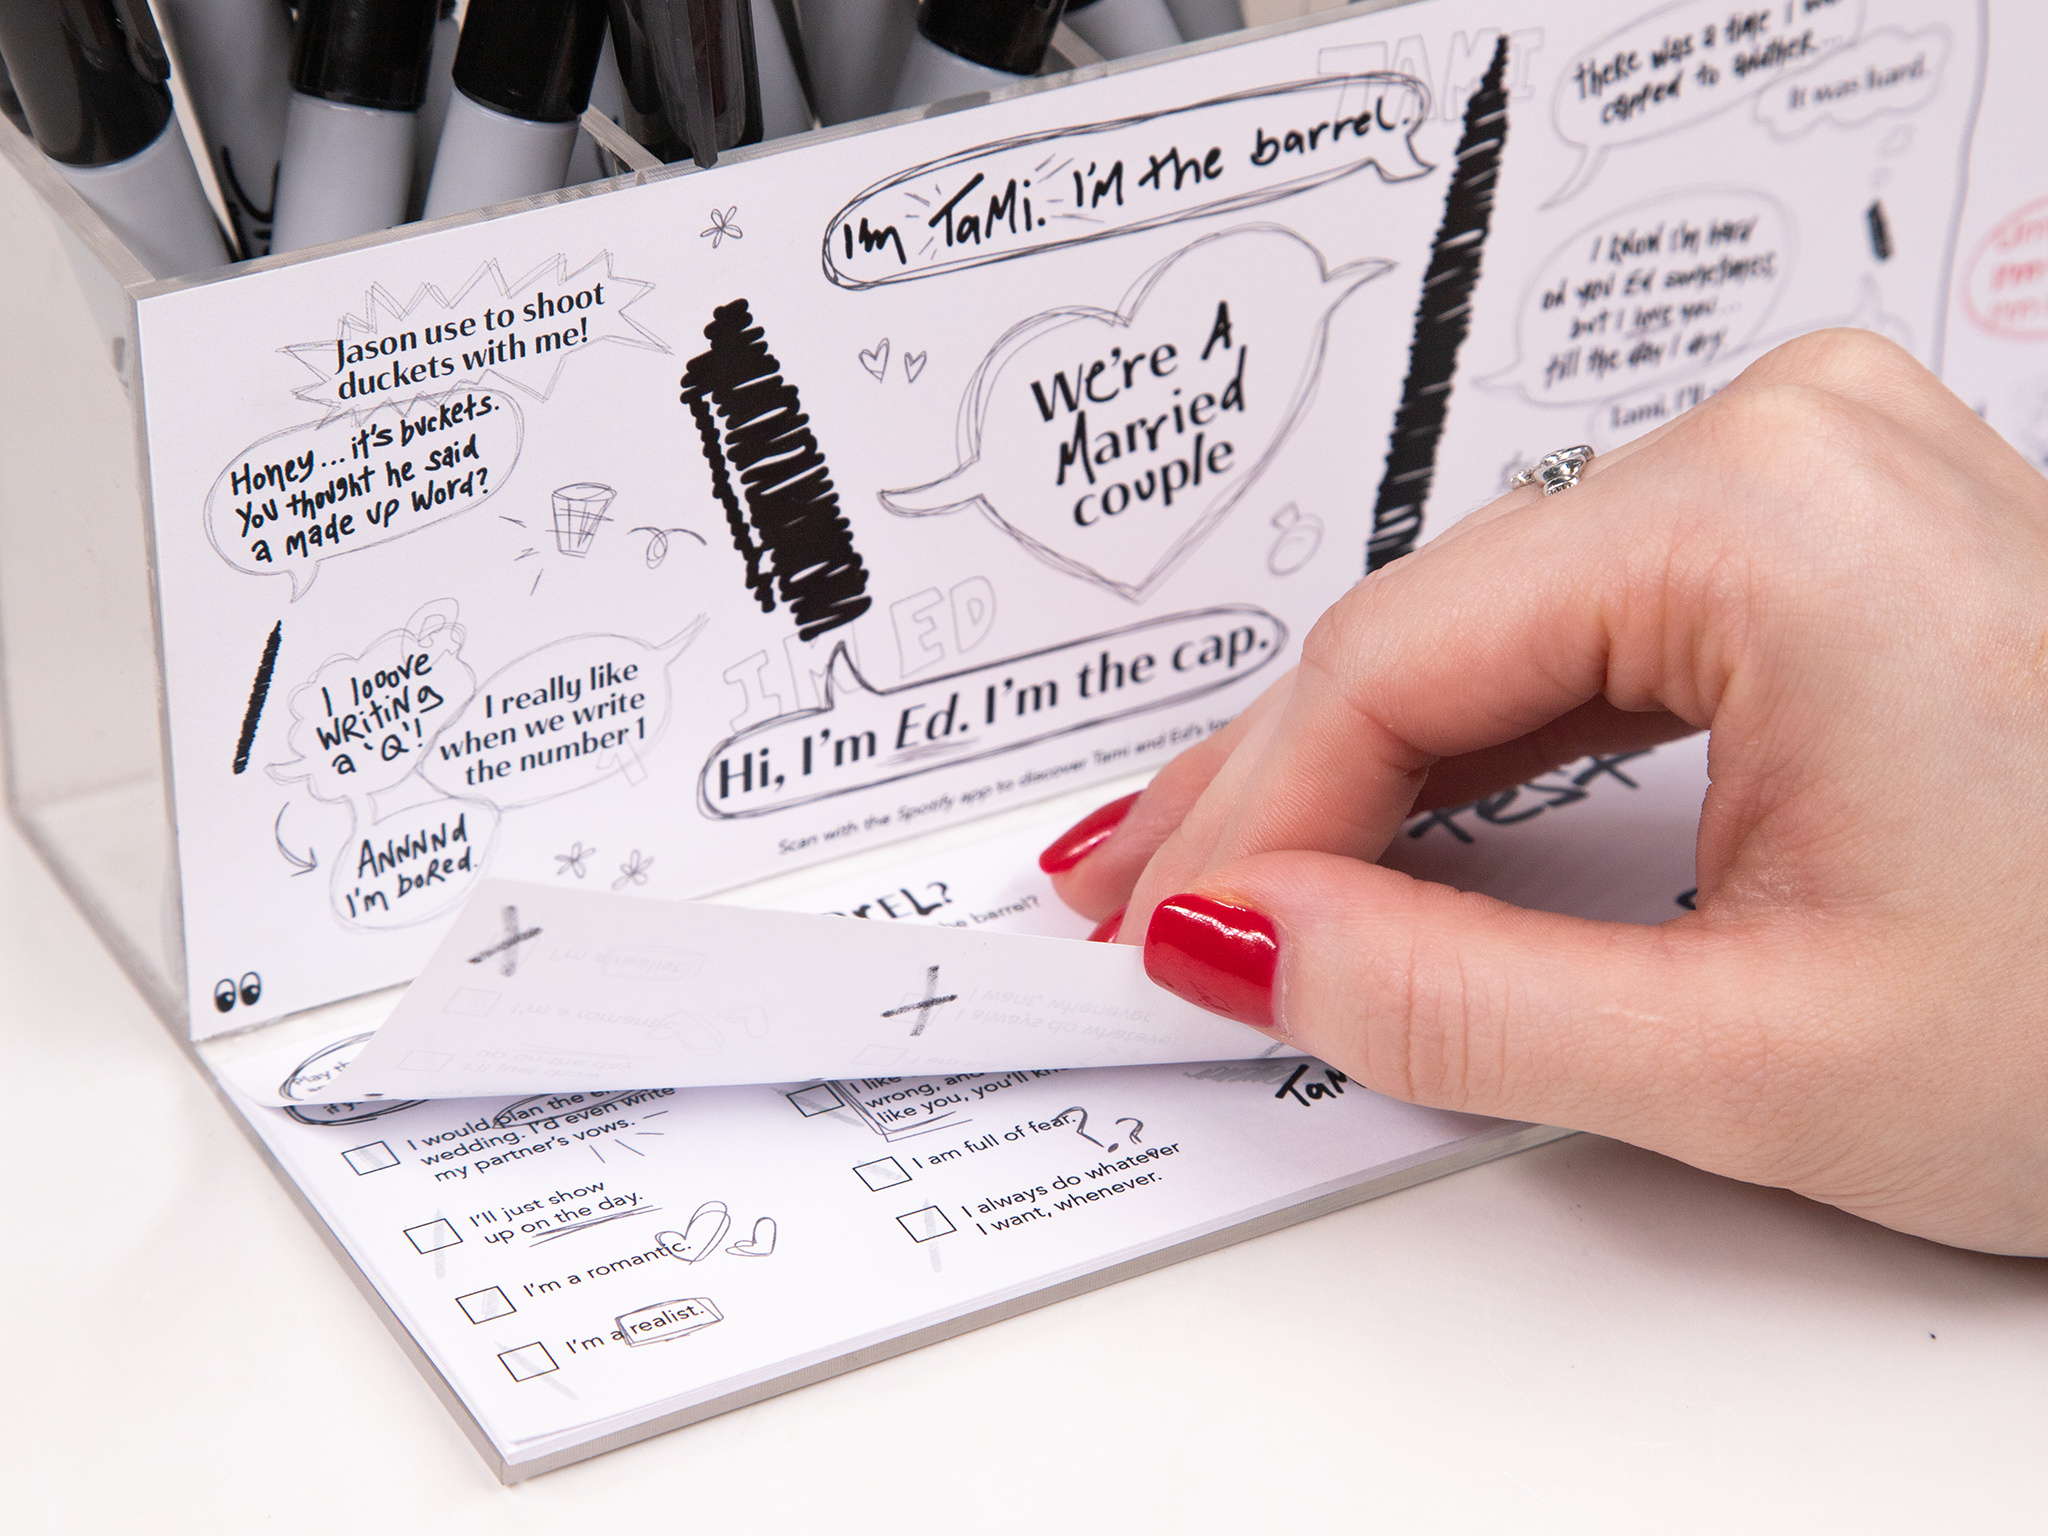 TAMI
I'm TaMi. I'M the barrel.
there was a time I was
capped to another...
It was hard.
Jason use to shoot
duckets with me!
Honey... it's buckets.
You thought he said
a made up word?
We're A
Married
couple
I know I'm hard
on you Ed sometimes,
but I love you...
till the day I dry
Tami, I'll
I looove
WRiTiNg
a 'Q'!
I really like
when we write
the number 1
ANNNNd
I'm boRed.
I'M ED
Hi, I'm Ed. I'm the cap.
Scan with the Spotify app to discover Tami and Ed's
test
the barrel?
Play
if
I would plan the
wedding. I'd even write
my partner's vows.
I'll just show
up on the day.
I'm a romantic.
I'm a realist.
I like
wrong, and
like you, you'll
I am full of fear.
??
I always do whatever
I want, whenever.